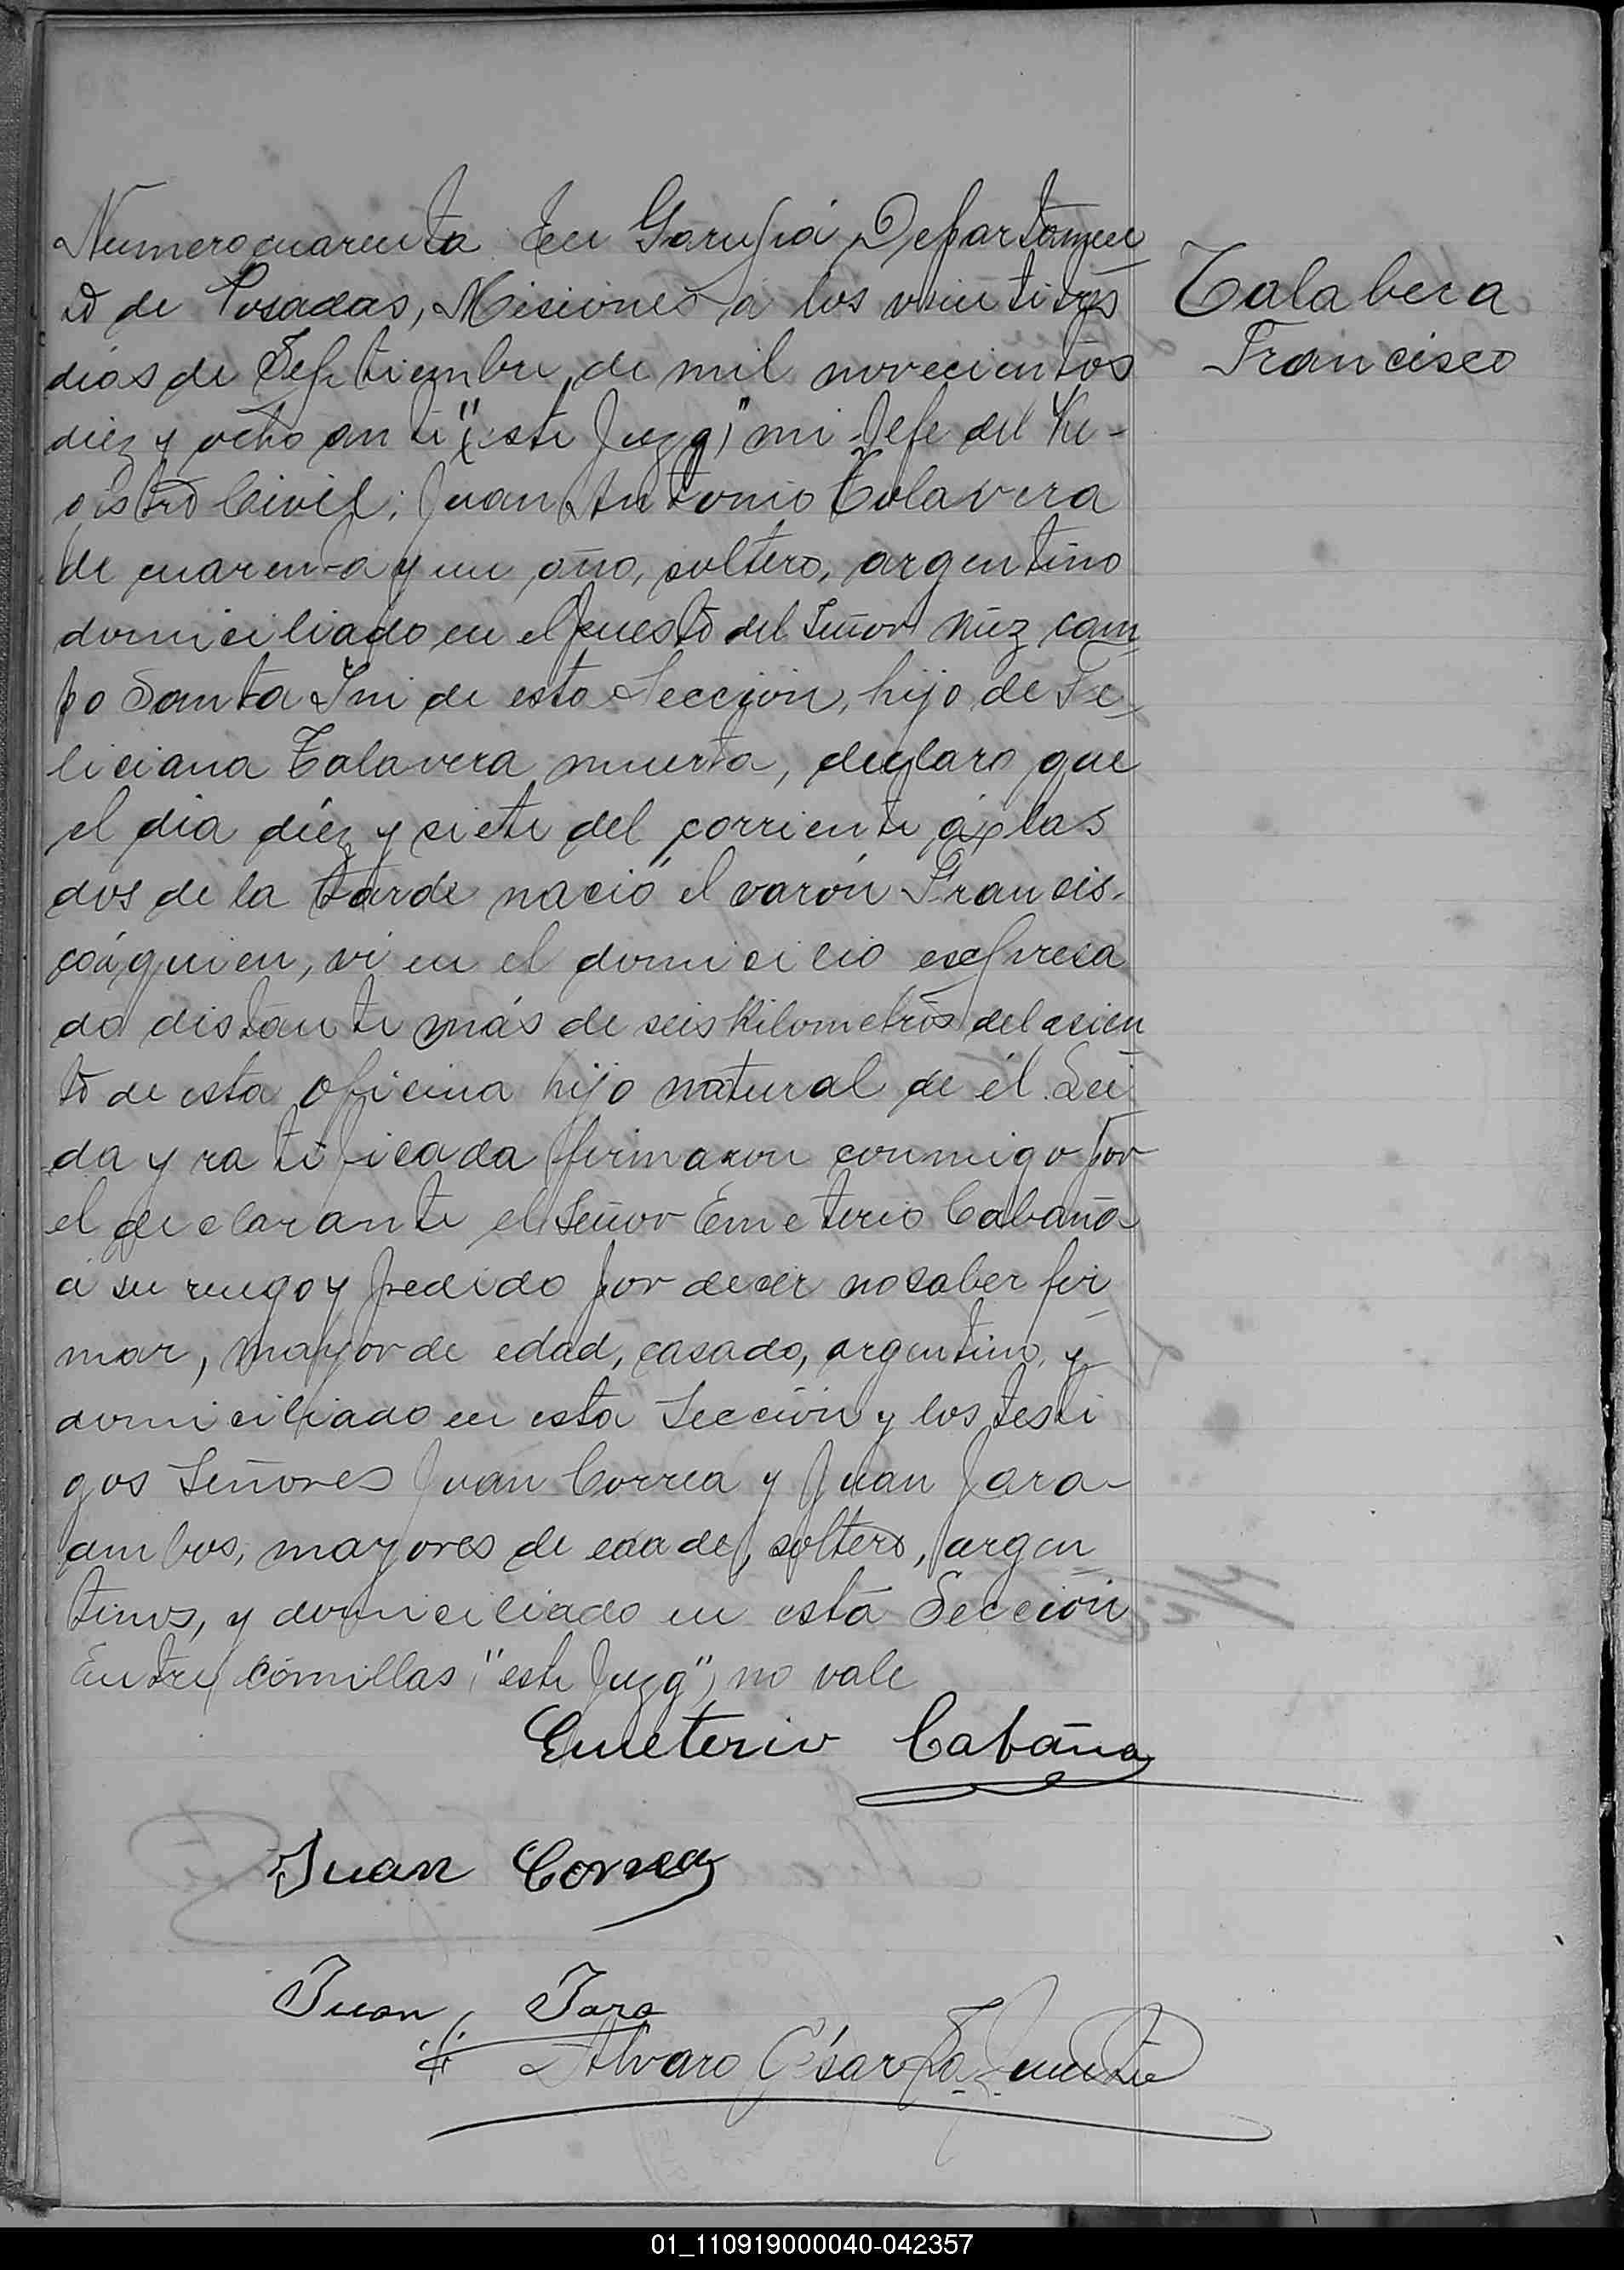 Numero cuarenta En Garupá Departamen
to de Posadas, Misiones a los veintitres
dias de Septiembre de mil novecientos
diez y ocho ante "este Juzg" mi Jefe del Re-
gistro Civil; Juan Antonio Talavera
de cuarenta y un año, soltero, argentino
domiciliado en el puesto del Señor cam
po Santa Ini de esta Sección, hijo de Fe-
liciana Talavera muerta, declaro que
el dia diéz y siete del corriente á las
dos de la tarde nació el varón Francis-
co á quien, vi en el domicilio expresa
do distante más de seis Kilometros del asien
to de esta oficina hijo natural de él. Lei
da y ratificada firmaron conmigo por
el declarante el Señor Emeterio Cabaña
á su ruego y pedido por decir no saber fir
mar, mayor de edad, casado, argentino, y
domiciliado en esta Sección y los testi
gos Señores Juan Correa y Juan Jara
ambos, mayores de edad, soltero, argen
tinos, y domiciliado en esta Sección
Entre comillas "este Juzg", no vale
Talabera
Francisco
Emeterio Cabaña
Juan Correa
Juan Jara
Alvaro César
01_110919000040-042357